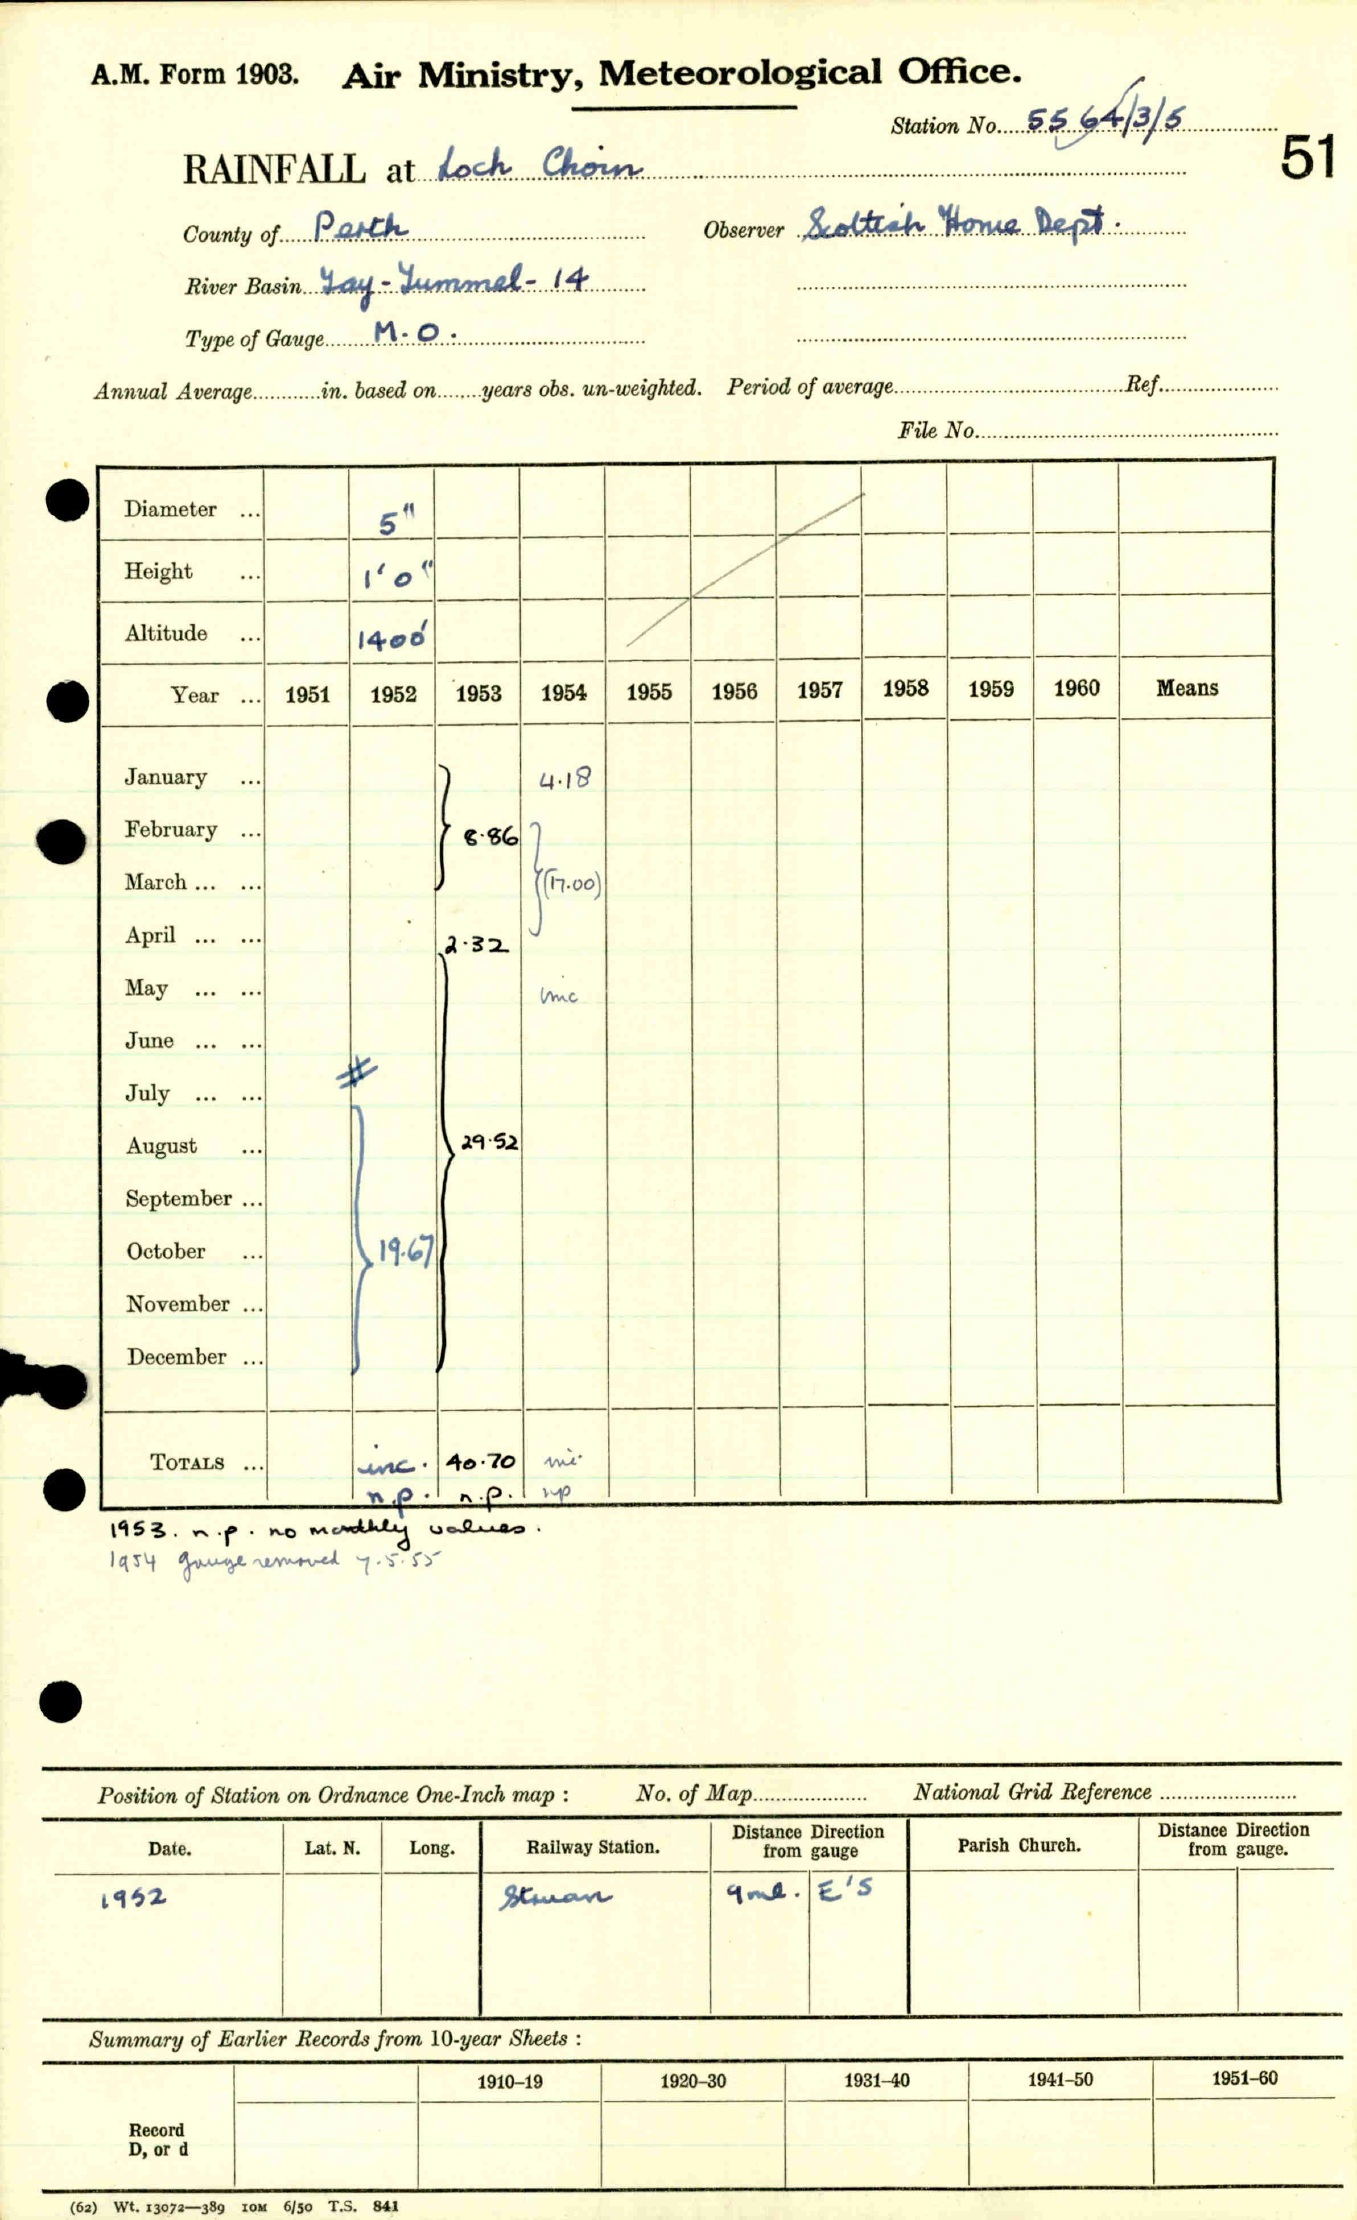 A.M. Form 1903. Air Ministry, Meteorological Office.
Station No. 5564/3/5
51
RAINFALL at Loch Choin
County of Perth Observer Scottish Home Dept.
River Basin Tay-Tummel-14
Type of Gauge M.O.
Annual Average in. based on years obs. un-weighted. Period of average Ref.
File No.
Diameter ... 5"
Height ... 1'0"
Altitude ... 1400'
Year ... 1951 1952 1953 1954 1955 1956 1957 1958 1959 1960 Means
January ... 4.18
February ... 8.86
March ... ... (17.00)
April ... ... 2.32
May ... ... inc
June ... ...
#
July ... ...
August ... 29.52
September ...
October ... 19.67
November ...
December ...
TOTALS ... inc. 40.70 inc
n.p. n.p. np
1953. n.p. no monthly values.
1954 gauge removed 7.5.55
Position of Station on Ordnance One-Inch map : No. of Map National Grid Reference
Date. Lat. N. Long. Railway Station. Distance from Direction gauge Parish Church. Distance from Direction gauge.
1952 Struan 9ml. E'S
Summary of Earlier Records from 10-year Sheets :
1910–19 1920–30 1931–40 1941–50 1951–60
Record
D, or d
(62) Wt. 13072—389 10M 6/50 T.S. 841